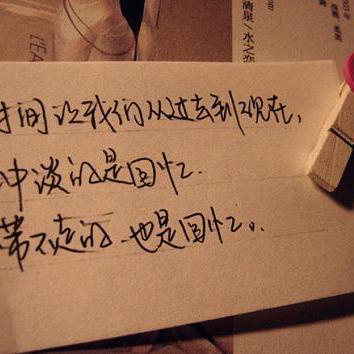 清泉/水之恋
时间让我们从过去到现在,
冲淡的是回忆.
带不走的 也是回忆..